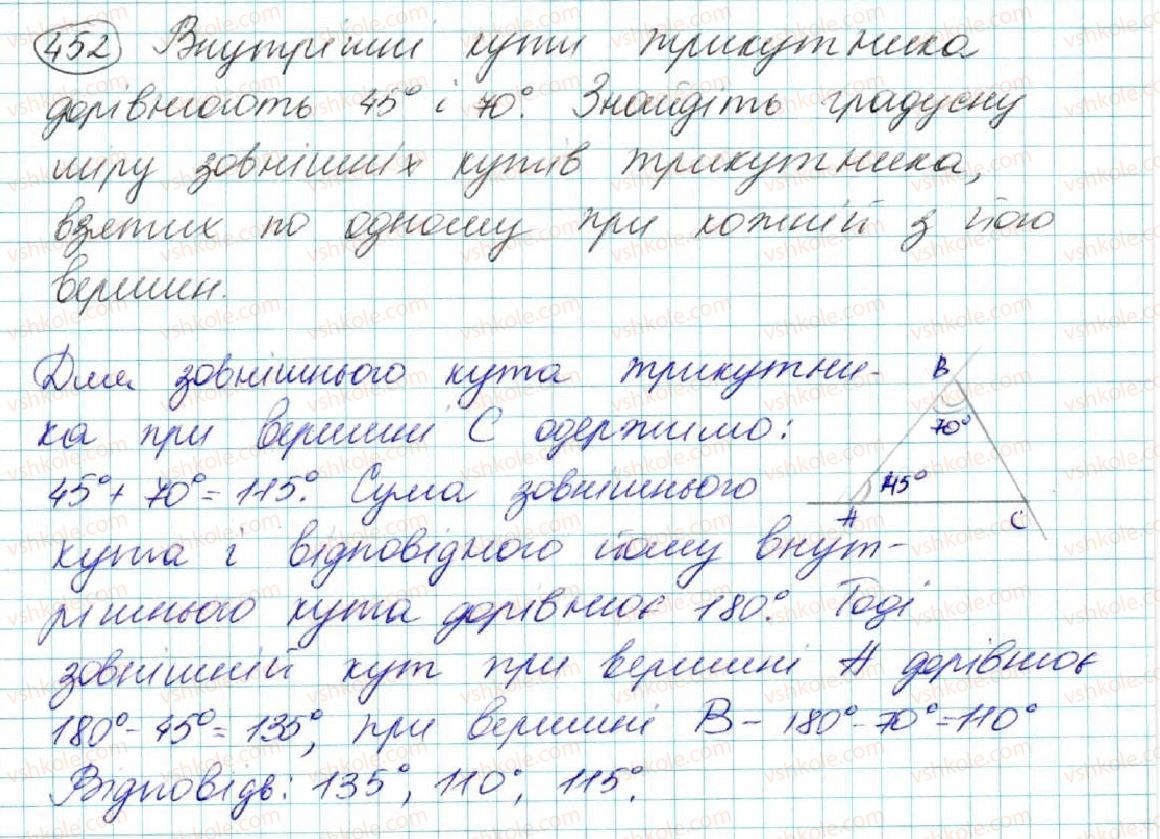 452 Внутрішні кути трикутника
дорівнюють 45° і 70°. Знайдіть градусну
міру зовнішніх кутів трикутника,
взятих по одному при кожній з його
вершин.
Для зовнішнього кута трикутни-
ка при вершині С одержимо:
45°+ 70°= 115°. Сума зовнішнього
кута і відповідного йому внут-
рішнього кута дорівнює 180°. Тоді
зовнішній кут при вершині А дорівнює
180°- 45°= 135°, при вершині В - 180°- 70°=110°
Відповідь: 135°, 110°, 115°.
В
70°
45°
А
С
vshkole.com